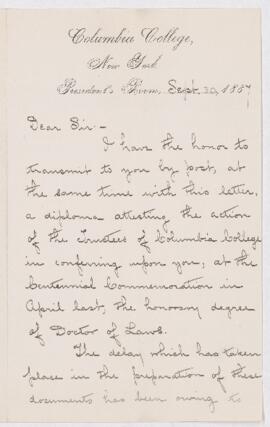 Columbia College,
New York.
President's Room, Sept. 30, 1887
Dear Sir:-
I have the honor to
transmit to you by post, at
the same time with this letter,
a diploma attesting the action
of the Trustees of Columbia College
in conferring upon you, at the
Centennial Commemoration in
April last, the honorary degree
of Doctor of Laws.
The delay which has taken
place in the preparation of these
documents has been owing to